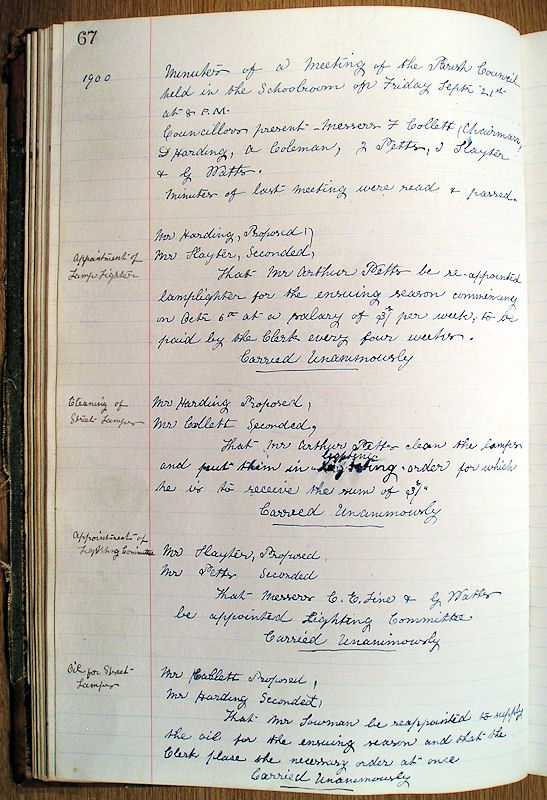 67
1900
Minutes of a Meeting of the Parish Council
held in the Schoolroom on Friday Sept 21st
at 8 P.M.
Councillors present - Messrs F Collett (Chairman)
D Harding, A Coleman, J Petts, J Slayter
& G Watts.
Minutes of last meeting were read & passed.
Mr Harding, Proposed,
Mr Slayter, Seconded,
Appointment of
Lamp Lighter
That Mr Arthur Petts be re-appointed
lamplighter for the ensuing season commencing
on Octr 6th at a salary of 3/- per week, to be
paid by the Clerk every four weeks.
Carried Unanimously
Cleaning of
Street Lamps
Mr Harding Proposed,
Mr Collett Seconded,
That Mr Arthur Petts clean the lamps
and put them in lighting order for which
he is to receive the sum of 3/-
Carried Unanimously
Appointment of
Lighting Committee
Mr Slayter, Proposed,
Mr Petts Seconded
That Messrs C. E. Line & G Watts
be appointed Lighting Committee
Carried Unanimously
Oil for Street
Lamps
Mr Collett Proposed,
Mr Harding Seconded,
That Mr Lowman be reappointed to supply
the oil for the ensuing season and that the
Clerk place the necessary order at once
Carried Unanimously